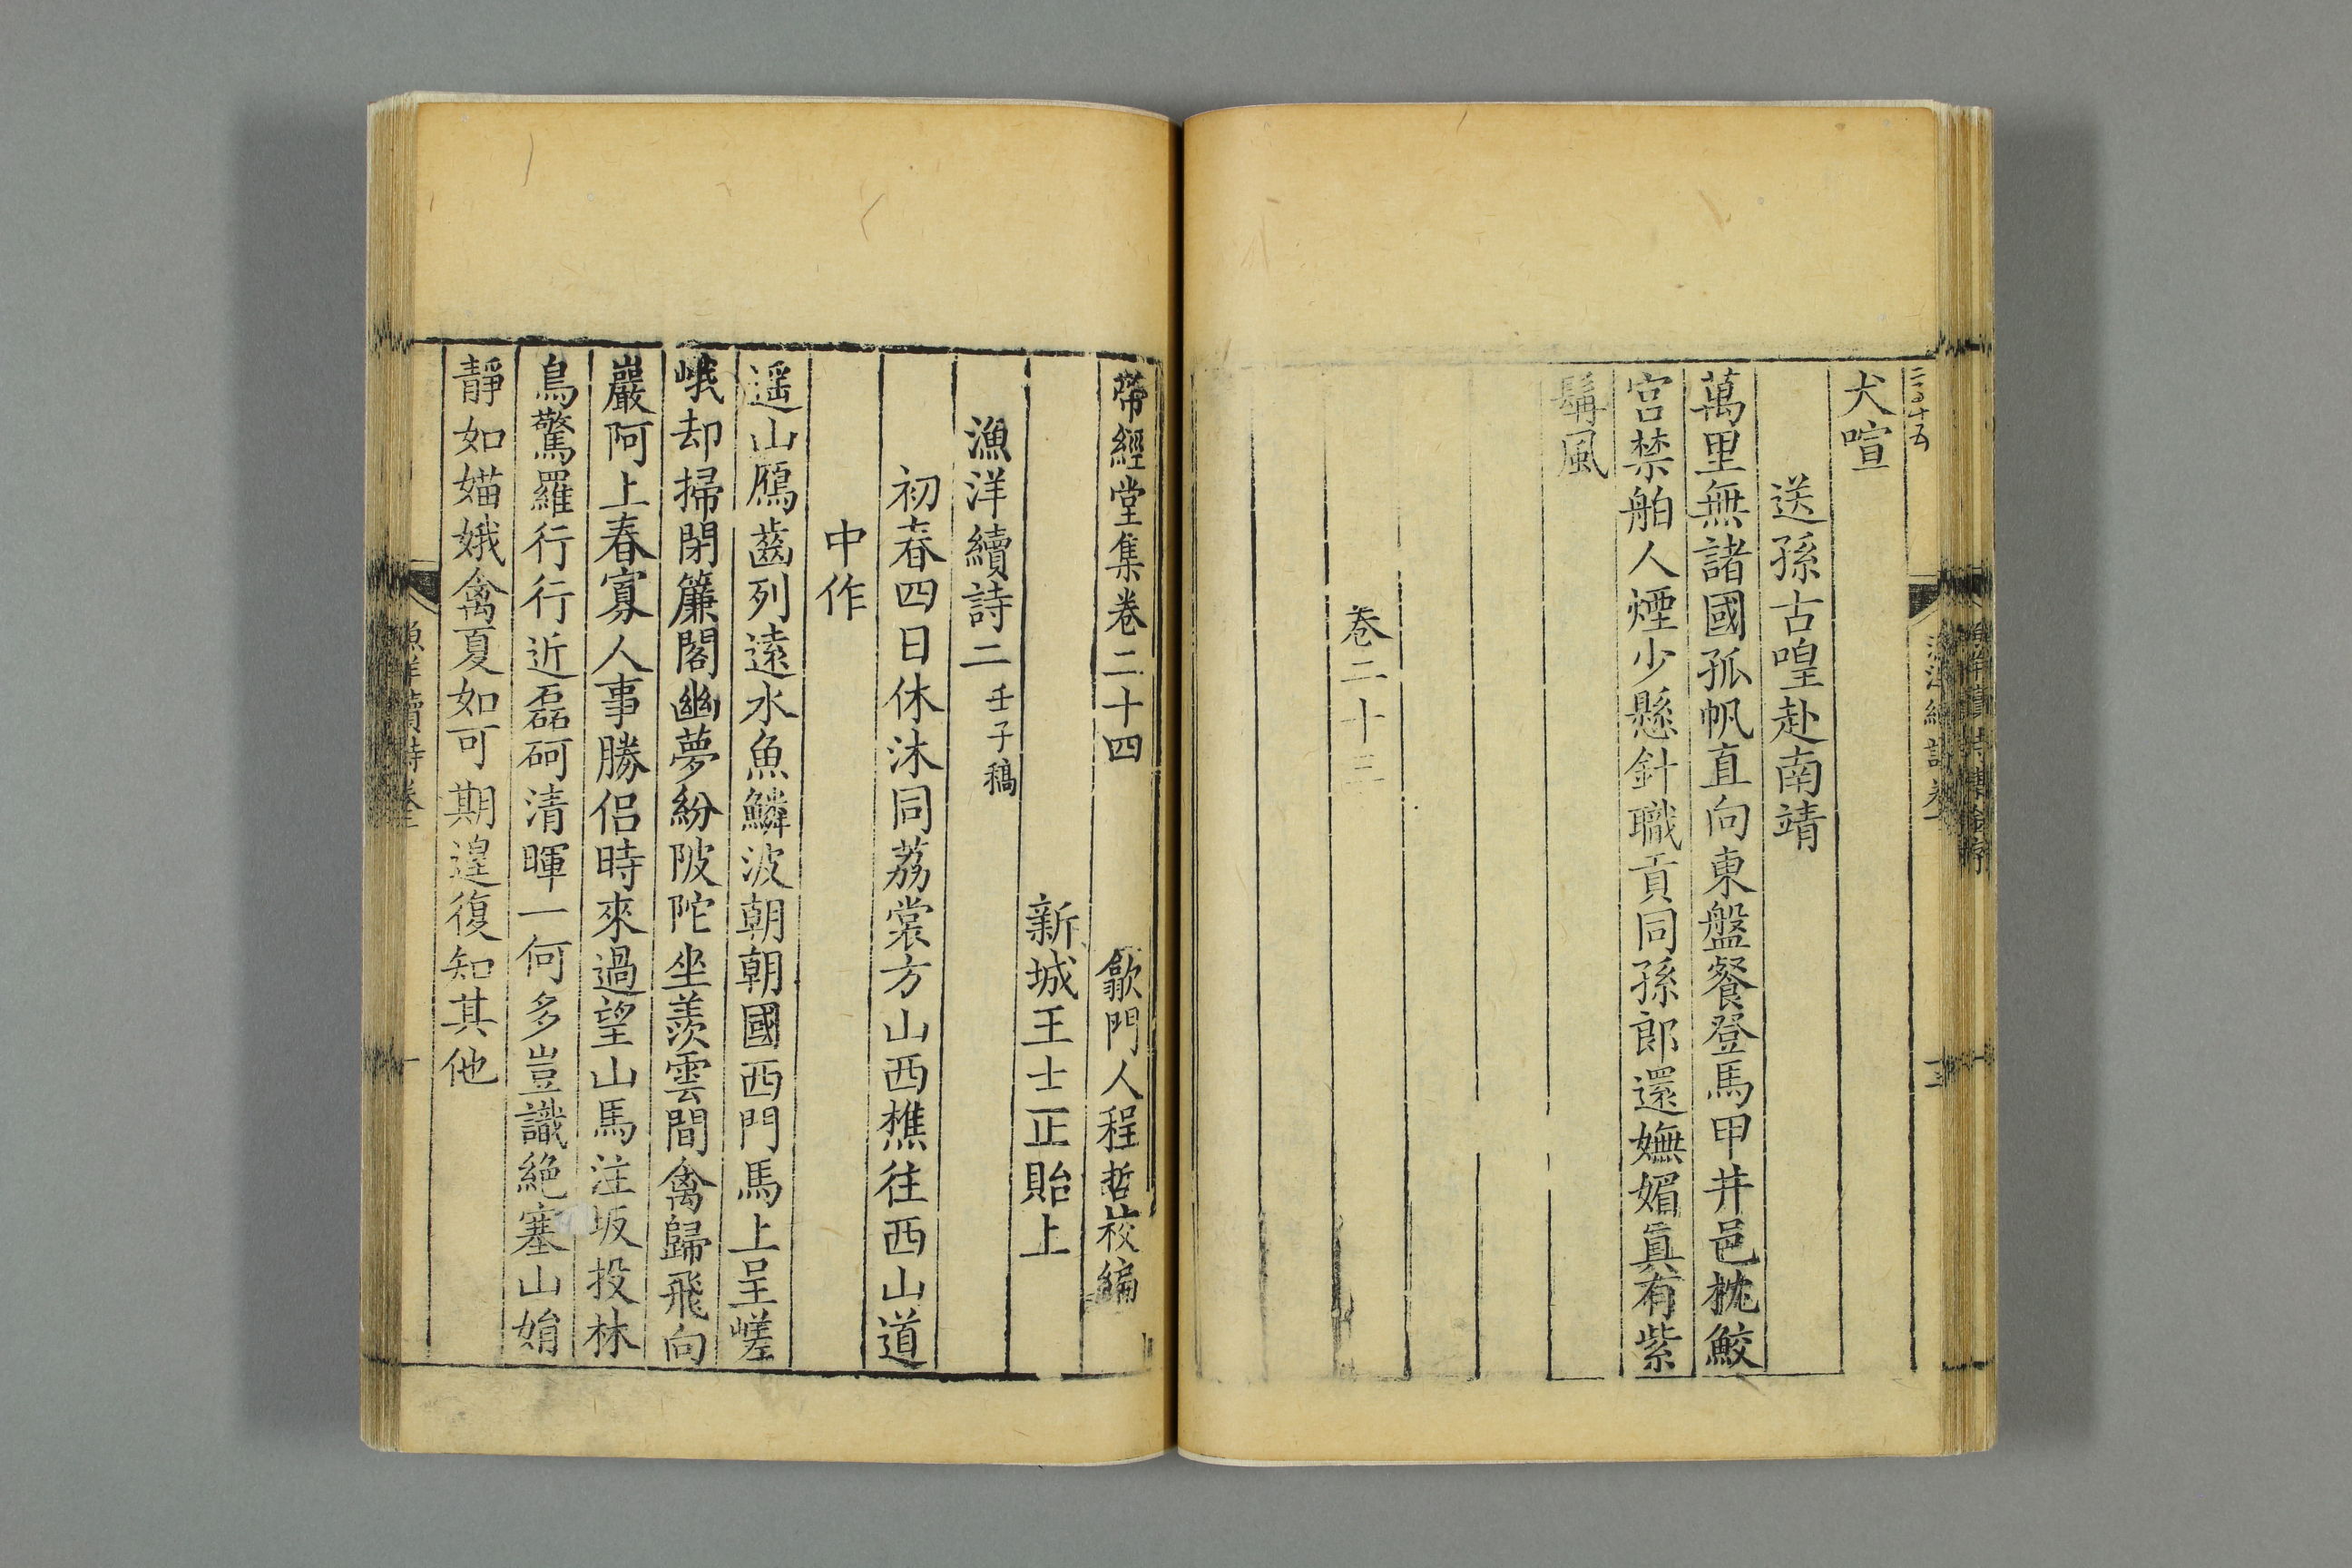 犬喧
送孫古喤赴南靖
萬里無諸國孤帆直向東盤餐登馬甲井邑枕鮫
宮禁舶人煙少懸針職貢同孫郎還嫵媚眞有紫
髯風
卷二十三
帶經堂集卷二十四
歙門人程哲校編
新城王士正貽上
漁洋續詩二 壬子稿
初春四日休沐同荔裳方山西樵往西山道
中作
遥山鴈齒列遠水魚鱗波朝朝國西門馬上呈嵯
峨却掃閉簾閣幽夢紛陂陀坐羨雲間禽歸飛向
巖阿上春寡人事勝侣時來過望山馬注坂投林
鳥驚羅行行近磊砢清暉一何多豈識絶塞山娟
靜如媌娥禽夏如可期遑復知其他
漁洋續詩卷二